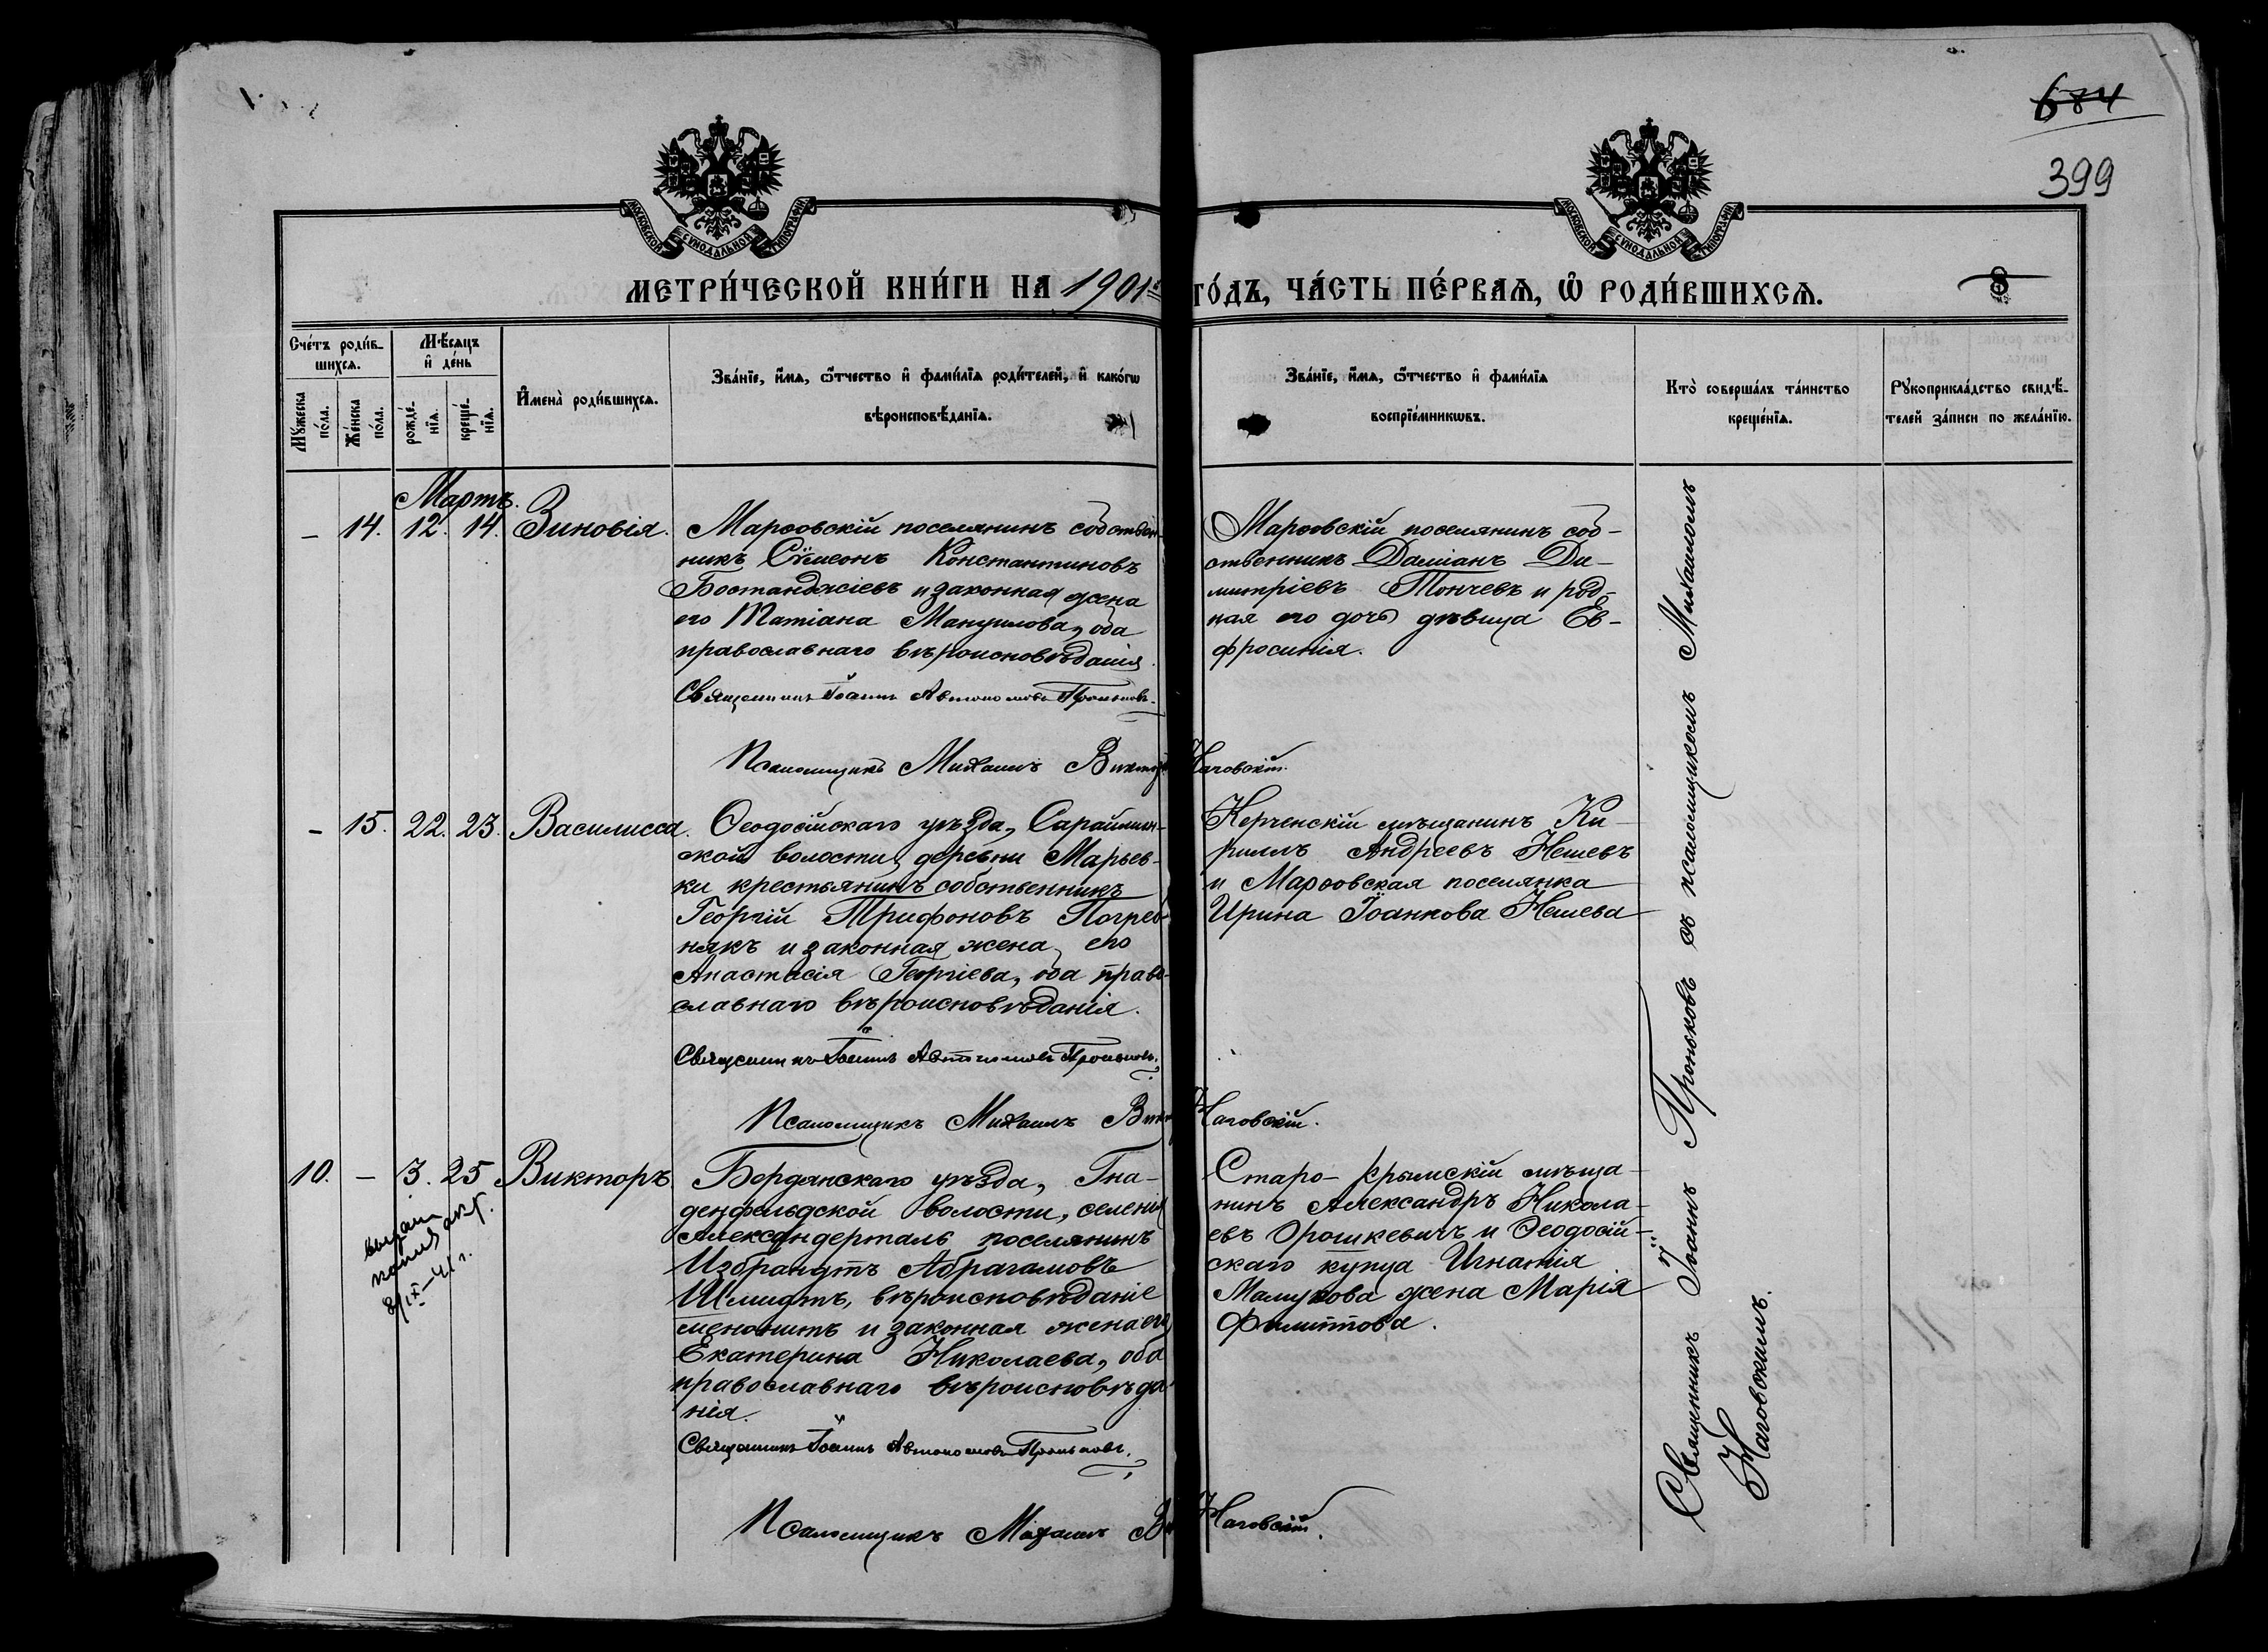 684
399
МОСКОВСКОЙ СУНОДАЛЬНОЙ ТИПОГРАФІИ
МОСКОВСКОЙ СУНОДАЛЬНОЙ ТИПОГРАФІИ
МЕТРИ́ЧЕСКОЙ КНИ́ГИ НА 1901й
ГО́ДЪ, ЧА́СТЬ ПЕ́РВАѦ, Ѿ РОДИ́ВШИХСѦ.
8
Сче́тъ роди́в-
шихсѧ.
Мѣ́сѧцъ
и҆ де́нь
Мꙋ́жеска
по́ла.
Же́нска
по́ла.
рожде́-
нїѧ.
креще́-
нїѧ.
И҆мена̀ роди́вшихсѧ.
Зва́нїе, и҆́мѧ, ѻ҆́тчество и҆ фами́лїѧ роди́телей, и҆ како́гѡ
вѣроисповѣ́данїѧ.
Зва́нїе, и҆́мѧ, ѻ҆́тчество и҆ фами́лїѧ
воспрїе́мникѡвъ.
Кто̀ соверша́лъ та́инство
креще́нїѧ.
Рꙋкоприкла́дство свидѣ́-
телей за́писи по жела́нїю.
Мартъ.
– 14. 12. 14. Зиновія.
Марѳовскій поселянинъ собствен-
никъ Сѵмеонъ Константиновъ
Бостанджіевъ и законная жена
его Татіана Мануилова, оба
православнаго вѣроисповѣданія.
Священникъ Іоаннъ Автономовъ Проньковъ.
Псаломщикъ Михаилъ Виктор
Наговскій.
Марѳовскій поселянинъ соб-
ственникъ Даміанъ Ди-
митріевъ Тончевъ и род-
ная его дочь дѣвица Ев-
фросинія.
– 15. 22. 23. Василисса.
Ѳеодосійскаго уѣзда, Сараймин-
ской волости, деревни Марьев-
ки крестьянинъ собственникъ
Георгій Трифоновъ Погреб-
някъ и законная жена его
Анастасія Георгіева, оба право-
славнаго вѣроисповѣданія.
Священникъ Іоаннъ Автономовъ Проньковъ.
Псаломщикъ Михаилъ Викт
Наговскій.
Керченскій мѣщанинъ Ки-
риллъ Андреевъ Нешевъ
и Марѳовская поселянка
Ирина Іоаннова Нешева
10. – 3. 25 Викторъ
выдана
копия акт.
8/IX–41 г.
Бердянскаго уѣзда, Гна-
денфельдской волости, селенія
Александерталь поселянинъ
Избрандтъ Абрагамовъ
Шмидтъ, вѣроисповѣданіе
менонитъ и законная жена его
Екатерина Николаева, оба
православнаго вѣроисповѣда-
нія.
Священникъ Іоаннъ Автономовъ Проньковъ.
Псаломщикъ Михаилъ Ви
Наговскій.
Старо-Крымскій мѣща-
нинъ Александръ Никола-
евъ Орошкевичъ и Ѳеодосій-
скаго купца Игнатія
Мамукова жена Марія
Филиппова.
Священникъ Іоаннъ Проньковъ съ псаломщикомъ Михаиломъ
Наговскимъ.